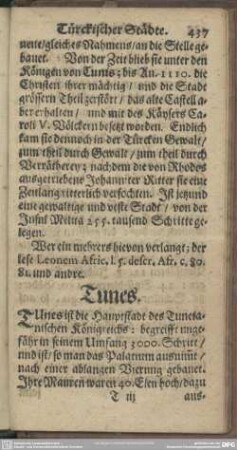 Türckischer Städte. 437
neute/gleiches Nahmens/an die Stelle ge-
bauet. Von der Zeit blieb sie unter den
Königen von Tunis; bis An. 1110. die
Christen ihrer mächtig/ und die Stadt
grössern Theil zerstört/ das alte Castell a-
ber erhalten/ und mit des Käysers Ca-
roli V. Völckern besetzt worden. Endlich
kam sie dennoch in der Türcken Gewalt/
zum theil durch Gewalt/ zum theil durch
Verrätherey; nachdem die von Rhodos
ausgetriebene Johanniter Ritter sie eine
Zeitlang ritterlich verfochten. Ist jetzund
eine gewaltige und veste Stadt/ von der
Insul Melita 255. tausend Schritte ge-
legen.
Wer ein mehrers hievon verlangt; der
lese Leonem Afric. l. 5. descr. Afr. c. 80.
81. und andre.
Tunes.
TUnes ist die Hauptstadt des Tuneta-
nischen Königreichs: begreifft unge-
fähr in seinem Umfang 3000. Schritt/
und ist/ so man das Palatium ausnimt/
nach einer ablangen Vierung gebauet.
Ihre Mauren waren 40. Elen hoch/ dazu
T iij aus-